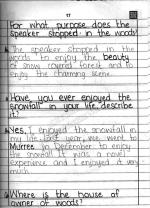 For what purpose does the
speaker stopped in the woods?
The speaker stopped in the
woods to enjoy the beauty
of snow round forest and to
enjoy the charming scene.
Have you ever enjoyed the
snowfall in your life describe
it?
Yes, I enjoyed the snowfall in
my life last year we went to
Murree in December to enjoy
the snowfall. It was a novel
experience and I enjoyed it very
much
Where is the house of
owner of woods?